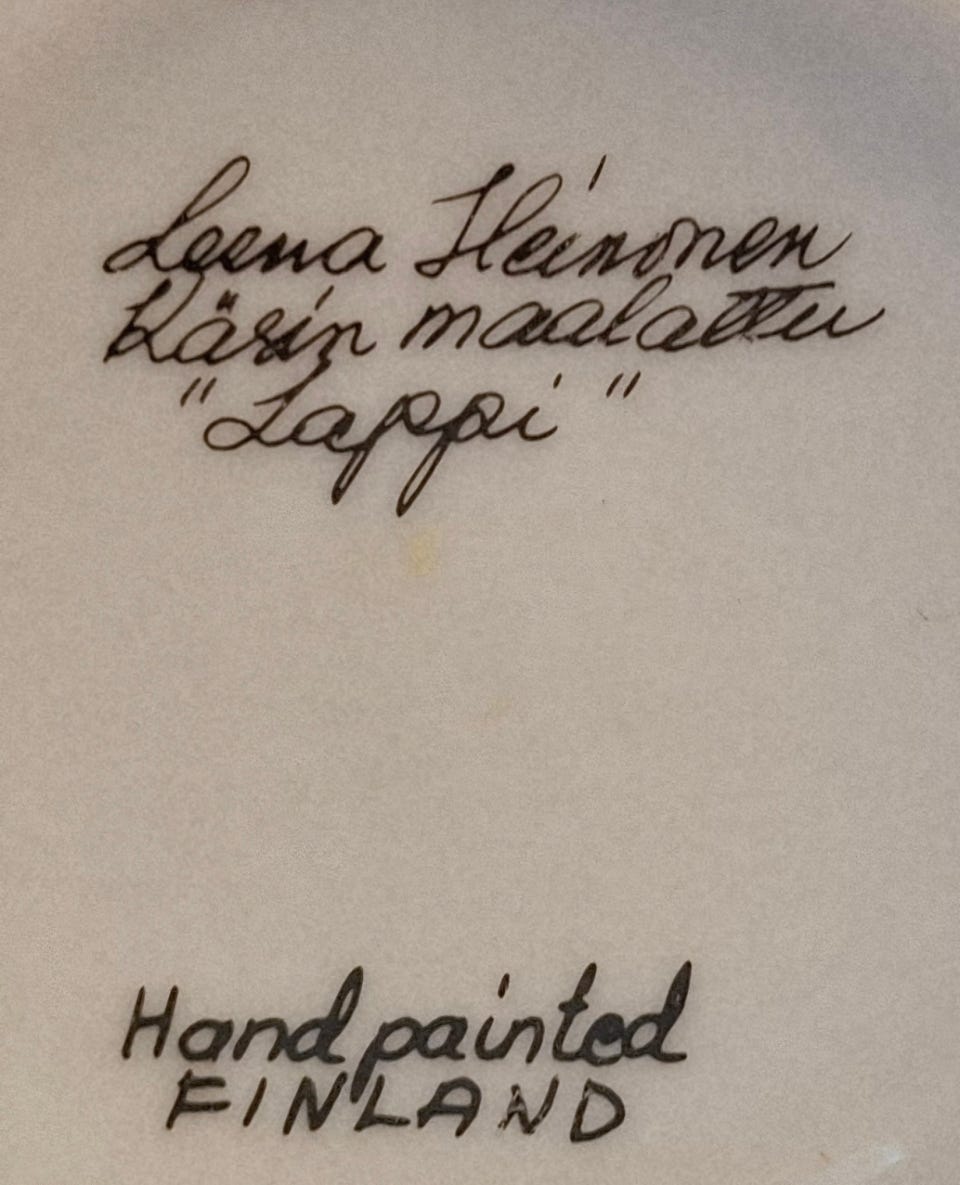 Leena Heinonen
Käsin maalattu
"Lappi"
Hand painted
FINLAND